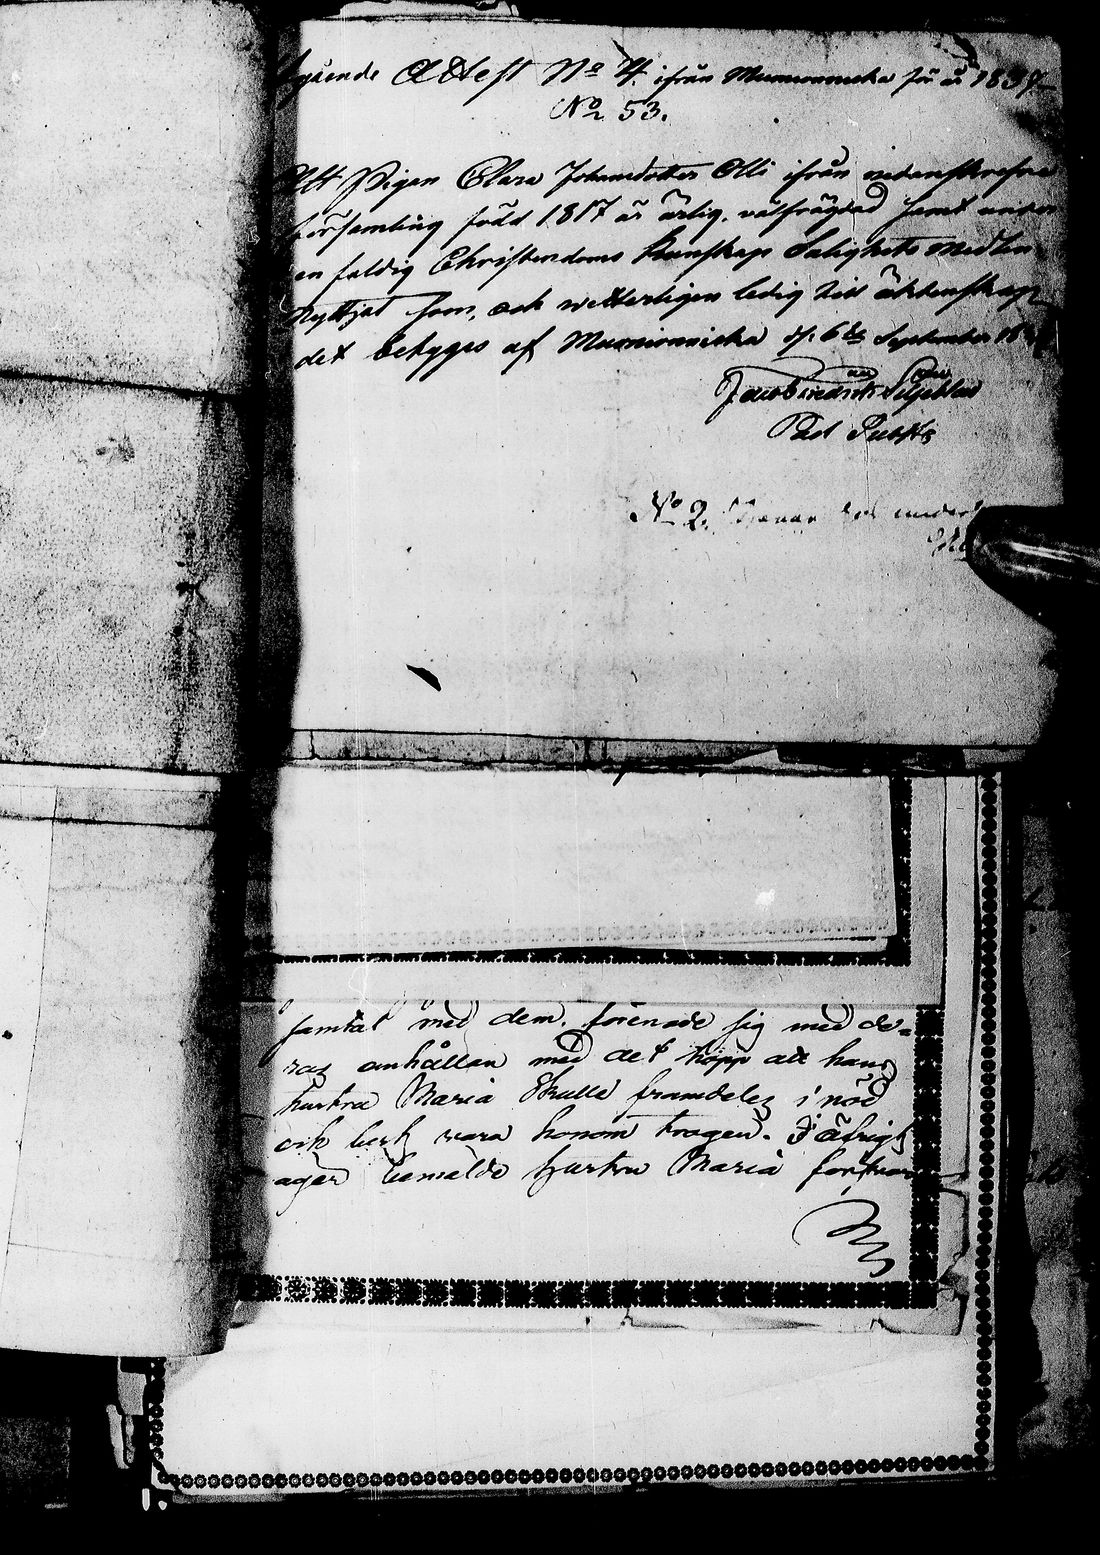 gående Attest No 4. ifrån Muonioniska för år 1837
No 53.
Att Pigan Clara Johansdotter Olli ifrån nedanskrefne
församling född 1817 är ärlig, välfrägdad samt under
en faldig Christendoms Kunskap Salighets medlen
nyttjat som, och wetterligen ledig till äktenskap
det betygas af Muonioniska d. 6 September
Past
No 2.
samtal med dem, förenade sig med de-
ras anhållan med det hopp att hans
hustru Maria skulle framdeles i nöd
och lust vara honom trogen. I öfrigt
äger bemälde hustru Maria